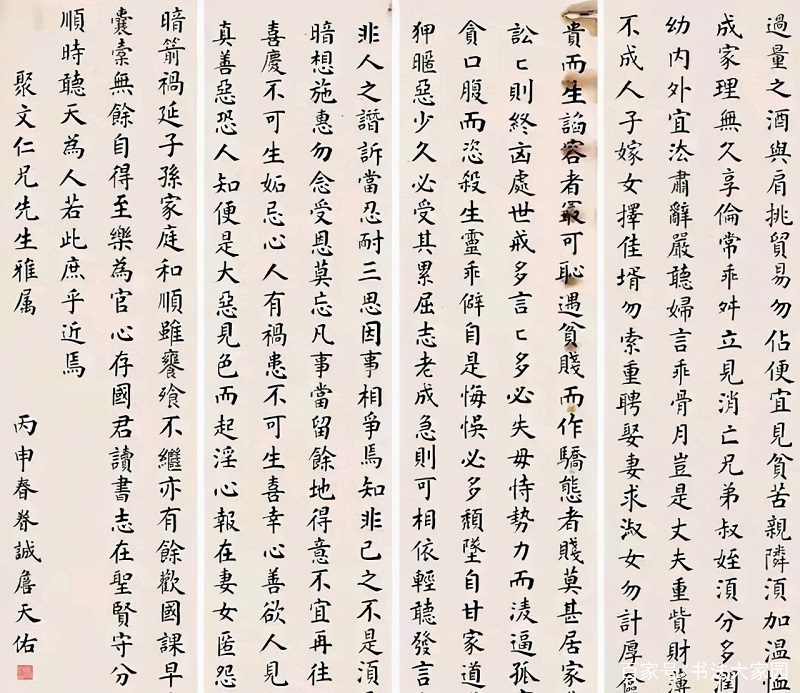 過量之酒與肩挑貿易勿佔便宜見貧苦親隣須加温恤
成家理無久享倫常乖舛立見消亡兄弟叔姪須分多潤
幼內外宜法肅辭嚴聽婦言乖骨月豈是丈夫重貲財薄
不成人子嫁女擇佳壻勿索重聘娶妻求淑女勿計厚奩
貴而生諂容者最可恥遇貧賤而作驕態者賤莫甚居家
訟〻則終凶處世戒多言〻多必失毋恃勢力而凌逼孤
貪口腹而恣殺生靈乖僻自是悔悞必多頹墮自甘家道
狎暱惡少久必受其累屈志老成急則可相依輕聽發言
非人之譖訴當忍耐三思因事相爭焉知非己之不是須
暗想施惠勿念受恩莫忘凡事當留餘地得意不宜再往
喜慶不可生妬忌心人有禍患不可生喜幸心善欲人見
真善惡恐人知便是大惡見色而起淫心報在妻女匿怨
暗箭禍延子孫家庭和順雖饔飧不繼亦有餘歡國課早
囊橐無餘自得至樂為官心存國君讀書志在聖賢守分
順時聽天為人若此庶乎近焉
聚文仁兄先生雅属
丙申春眷誠詹天佑
百家号/书法大家园